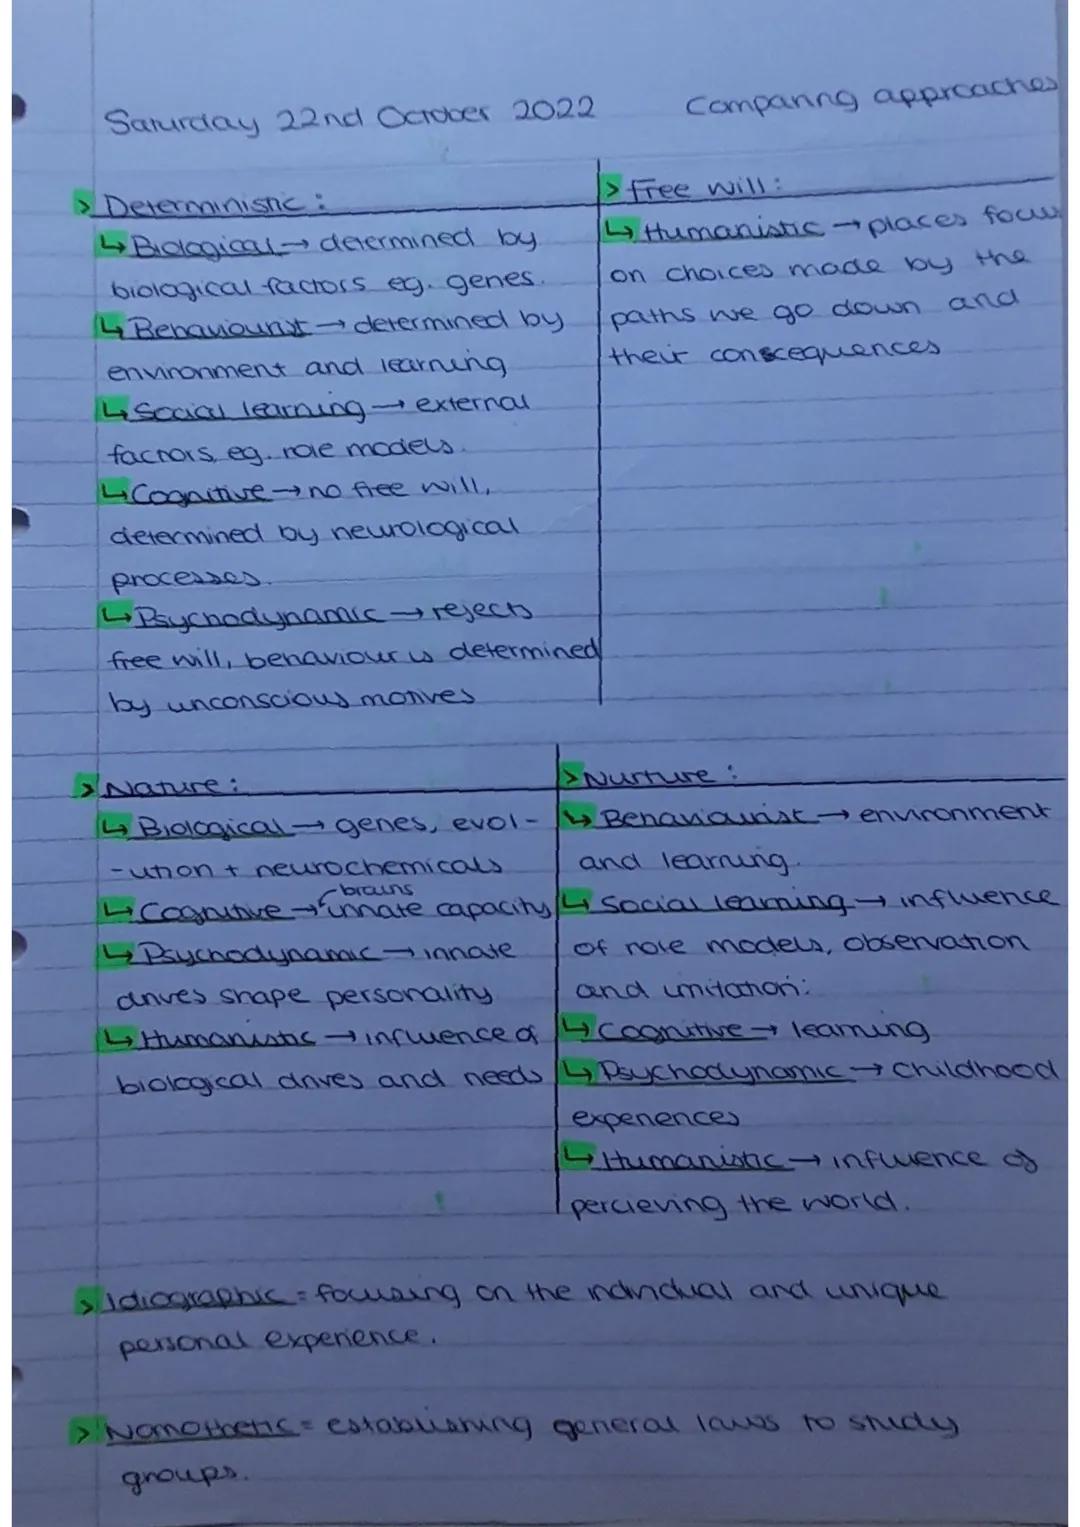 Saturday 22nd October 2022 Comparing approaches
> Deterministic:
↳ Biological → determined by
biological factors eg. genes.
↳ Behaviourist → determined by
environment and learning
↳ Social learning → external
factors, eg. role models.
↳ Cognitive → no free will,
determined by neurological
processes.
↳ Psychodynamic → rejects
free will, behaviour is determined
by unconscious motives
> free will:
↳ Humanistic → places focus
on choices made by the
paths we go down and
their conscequences
> Nature:
↳ Biological → genes, evol-
-ution + neurochemicals
brains
↳ Cognitive → innate capacity
↳ Psychodynamic → innate
drives shape personality
↳ Humanistic → influence of
biological drives and needs
> Nurture:
↳ Behaviourist → environment
and learning.
↳ Social learning → influence
of role models, observation
and imitation:
↳ Cognitive → learning
↳ Psychodynamic → childhood
experiences
↳ Humanistic → influence of
percieving the world.
> Idiographic = focusing on the individual and unique
personal experience.
> Nomothetic = establishing general laws to study
groups.